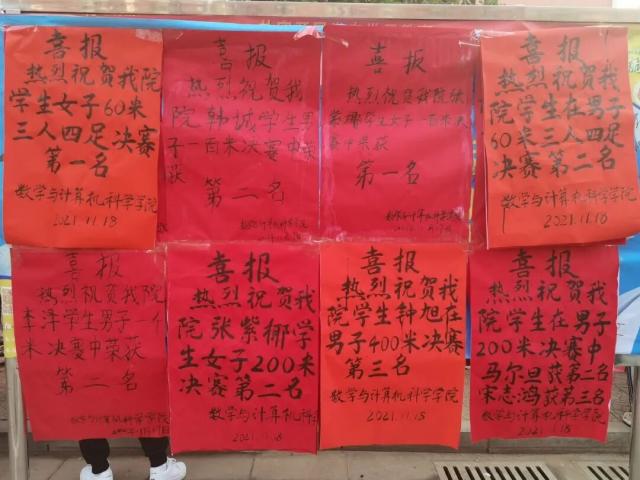 喜报
热烈祝贺我院
学生女子60米
三人四足决赛
第一名
数学与计算机科学学院
2021.11.18
喜报
热烈祝贺我
院韩城学生男
子一百米决赛中荣
获
第二名
喜报
热烈祝贺我院张
紫椰学生女子一百米决
赛中荣获
第一名
喜报
热烈祝贺我
院学生在男子
60米三人四足
决赛第二名
数学与计算机科学学院
2021.11.18
喜报
热烈祝贺我院
李泽学生男子一千
米决赛中荣获
第二名
喜报
热烈祝贺我
院张紫椰学
生女子200米
决赛第二名
数学与计算机科
2021.11.18
喜报
热烈祝贺我
院学生钟旭在
男子400米决赛
第三名
数学与计算机科学学院
2021.11.18
喜报
热烈祝贺我
院学生在男子
200米决赛中
马尔旦获第二名
宋志鸿获第三名
数学与计算机科学学院
2021.11.18